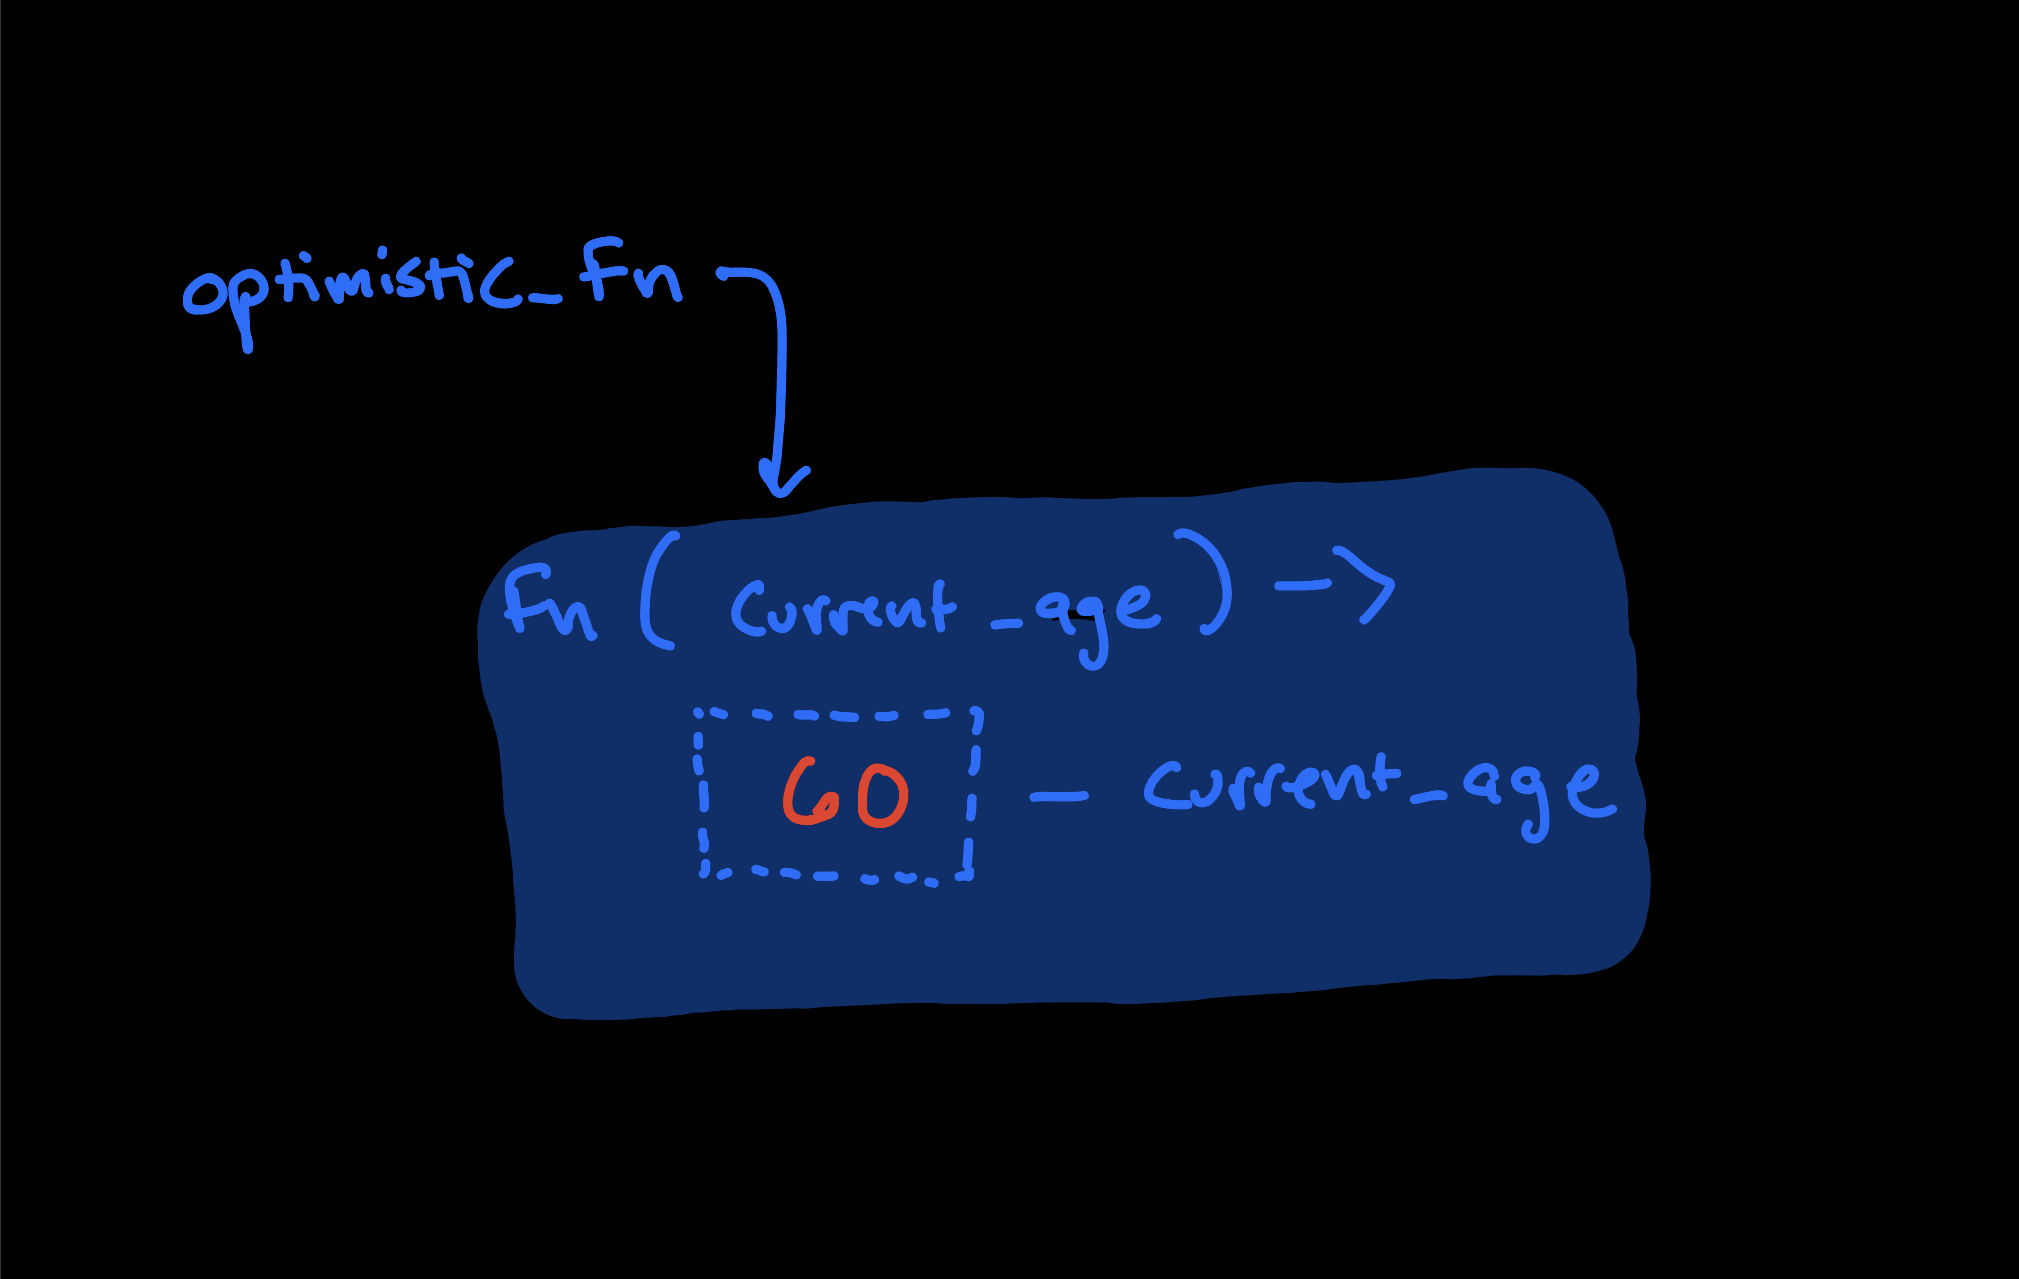 optimistic_fn
fn ( current_age ) ->
60 - current_age